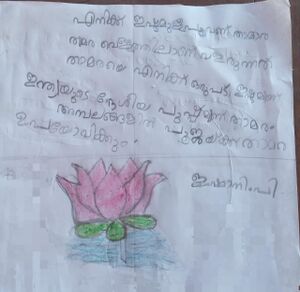 എനിക്ക് ഇഷ്ടമുള്ള പൂവാണ് താമര
താമര വെള്ളത്തിലാണ് വളരുന്നത്
താമരയെ എനിക്ക് ഒരുപാട് ഇഷ്ടമാണ്
ഇന്ത്യയുടെ ദേശീയ പുഷ്പമാണ് താമര
അമ്പലങ്ങളിൽ പൂജയ്ക്ക് താമര
ഉപയോഗിക്കും
ഇഷാനി.പി